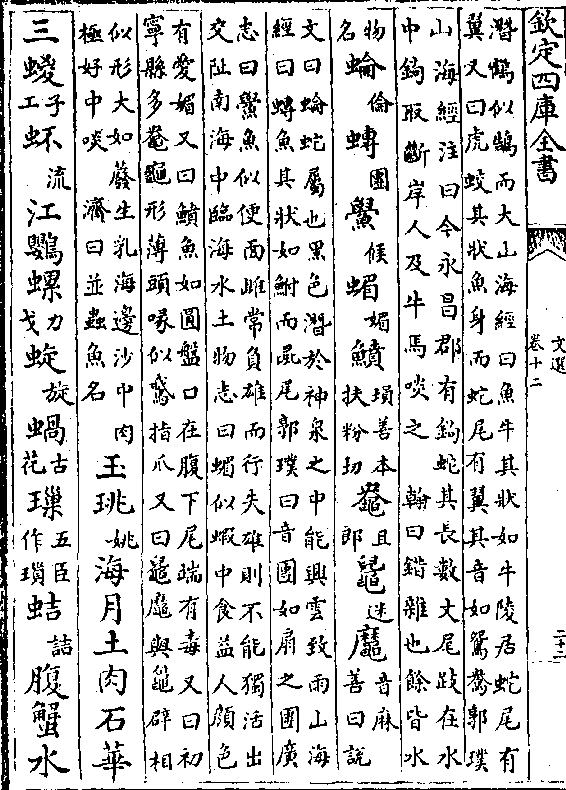 欽定四庫全書
文選
卷十二
二十二
潛鵠似鵠而大山海經曰魚牛其狀如牛陵居蛇尾有
翼又曰虎蛟其狀魚身而蛇尾有翼其音如鴛鴦郭璞
山海經注曰今永昌郡有鈎蛇其長數丈尾跂在水
中鈎取斷岸人及牛馬啖之　翰曰錯雜也餘皆水
物名蜦倫團鱟候蝞媚鱝損善本扶粉切且郎迷音麻善曰説
文曰蜦蛇屬也黑色潛於神泉之中能興雲致雨山海
經曰魚其狀如鮒而彘尾郭璞曰音團如扇之團廣
志曰鱟魚似便面雌常負雄而行失雄則不能獨活出
交阯南海中臨海水土物志曰蝞似蝦中食益人顔色
有愛媚又曰鱝魚如圓盤口在腹下尾端有毒又曰初
寧縣多龜形薄頭喙似鵞指爪又曰與龜辟相
似形大如生乳海邊沙中肉
極好中啖　濟曰並蟲魚名
王珧姚海月土肉石華
三蝬子工流江鸚螺力戈蜁旋蝸古花璅五臣作瑣蛣詰腹蟹水